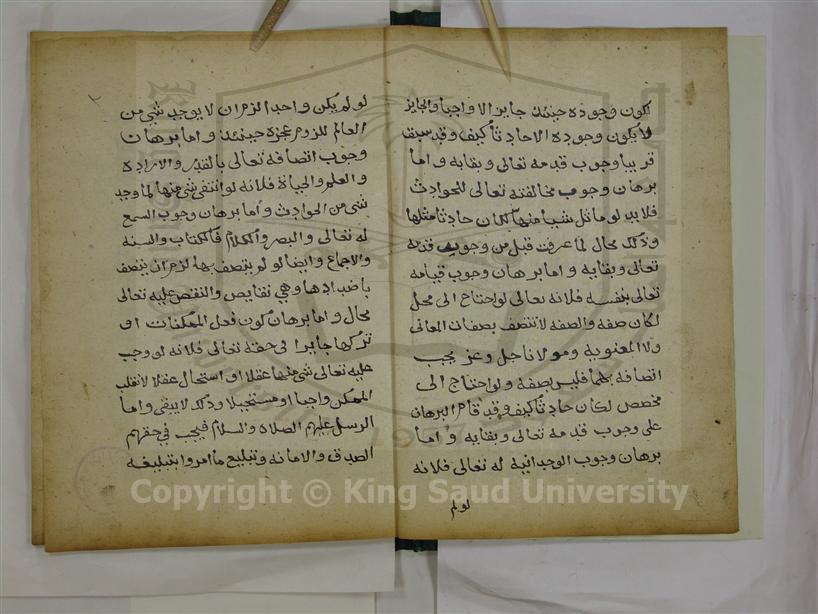 كون وجوده حينئذ جايز الا واجبا والجايز
لا يكون وجوده الا حادثا كيف وقد سبق
قريبا وجوب قدمه تعالى وبقايه واما
برهان وجوب مخالفته تعالى للحوادث
فلانه لو ماثل شيا منها لكان حادثا مثلها
وذلك محال لما عرفت قبل من وجوب قدمه
تعالى وبقايه واما برهان وجوب قيامه
تعالى بنفسه فلانه تعالى لو احتاج الى محل
لكان صفة والصفة لا تتصف بصفات المعاني
ولا المعنوية ومولانا جل وعز يجب
اتصافه بهما فليس بصفة ولو احتاج الى
مخصص لكان حادثا كيف وقد قام البرهان
على وجوب قدمه تعالى وبقايه واما
برهان وجوب الوحدانيه له تعالى فلانه
لو لم
لو لم يكن واحد الزم ان لا يوجد شي من
العالم للزوم عجزه حينئذ واما برهان
وجوب اتصافه تعالى بالقدره والاراده
والعلم والحياة فلانه لو انتفى شي منها لما وجد
شي من الحوادث واما برهان وجوب السمع
له تعالى والبصر والكلام فالكتاب والسنه
والاجماع وايضا لو لم يتصف بها لزم ان يتصف
باضدادها وهي نقايص والنقص عليه تعالى
محال واما برهان كون فعل الممكنات او
تركها جايزا في حقه تعالى فلانه لو وجب
عليه تعالى شي منها عقلا او استحال عقلا لانقلب
الممكن واجبا او مستحيلا وذلك لا يبقى واما
الرسل عليهم الصلاة والسلام فيجب في حقهم
الصدق والامانه وتبليغ ما امروا بتبليغه
Copyright © King Saud University
1957